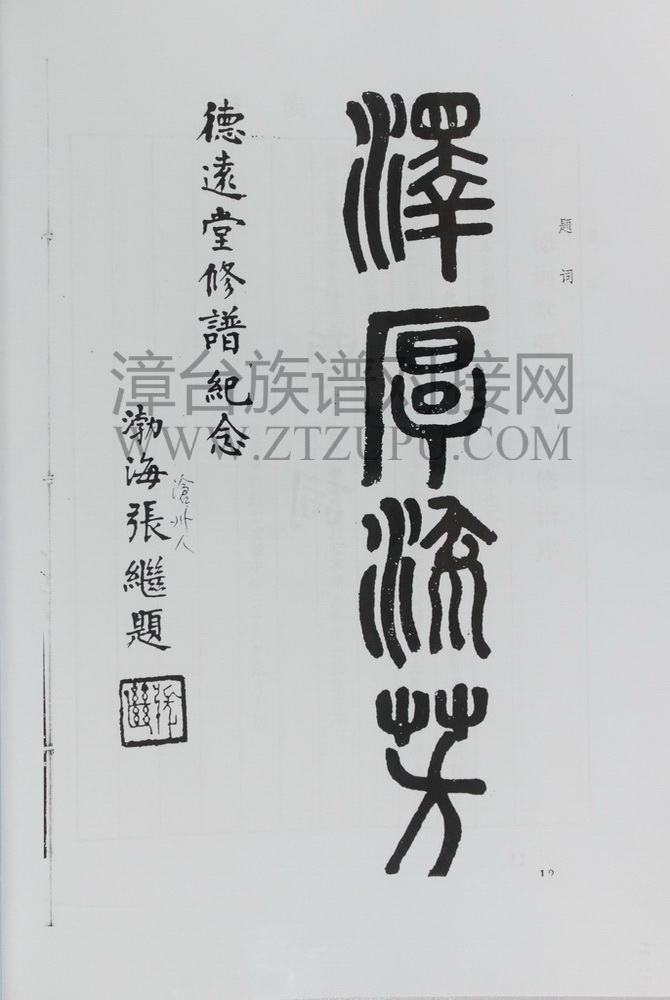 题词
澤厚流芳
德遠堂修譜紀念
渤海張繼題
滄州人
張繼
漳台族谱对接网
WWW.ZTZUPU.COM
12